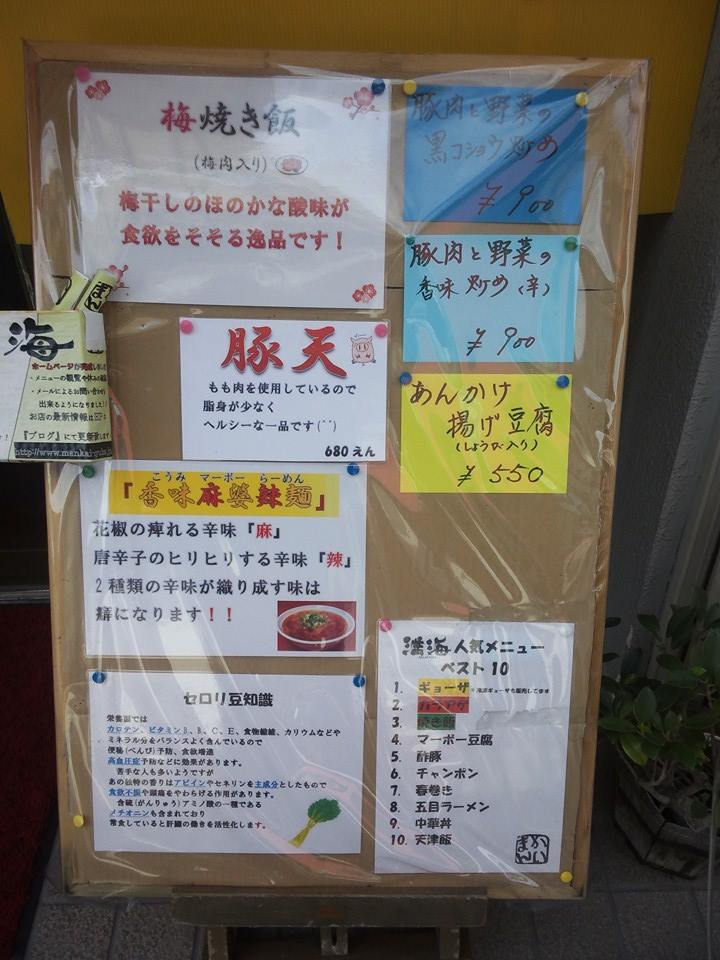 梅焼き飯
(梅肉入り)
梅干しのほのかな酸味が
食欲をそそる逸品です！
豚肉と野菜の
黒コショウ炒め
¥900
豚肉と野菜の
香味炒め(辛)
¥900
あんかけ
揚げ豆腐
(しょうが入り)
¥550
豚天
もも肉を使用しているので
脂身が少なく
ヘルシーな一品です(^^)
680えん
海
ホームページが完成しました
・メニューの観覧や休みの確認
・メールによるお問い合わせが
出来るようになりました！
お店の最新情報はHPの
『ブログ』にて更新します
http://www.mankai-gyuba
こうみ マーボー らーめん
「香味麻婆辣麺」
花椒の痺れる辛味『麻』
唐辛子のヒリヒリする辛味『辣』
2種類の辛味が織り成す味は
癖になります！！
セロリ豆知識
栄養面では
カロテン、ビタミンB、B、C、E、食物繊維、カリウムなどや
ミネラル分をバランスよく含んでいるので
便秘(べんぴ)予防、食欲増進
高血圧症予防などに効果があります。
苦手な人も多いようですが
あの独特の香りはアピインやセネリンを主成分としたもので
食欲不振や頭痛をやわらげる作用があります。
含硫(がんりゅう)アミノ酸の一種である
メチオニンも含まれており
常食していると肝臓の働きを活性化します。
満海人気メニュー
ベスト10
1. ギョーザ ※冷凍ギョーザも販売してます
2. カラアゲ
3. 焼き飯
4. マーボー豆腐
5. 酢豚
6. チャンポン
7. 春巻き
8. 五目ラーメン
9. 中華丼
10. 天津飯
まんかい